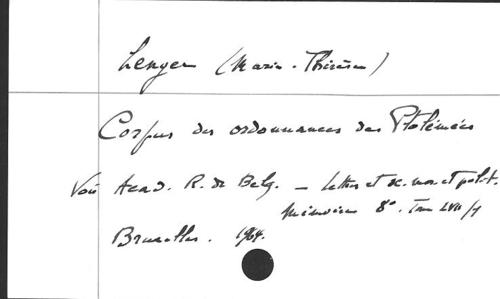 Lenger (Marie-Thérèse)
Corpus des ordonnances des Ptolémées
Voir Acad. R. de Belg. – Lettres et sc. mor. et polit.
Mémoires 8°. Tom LVII/1
Bruxelles. 1964.